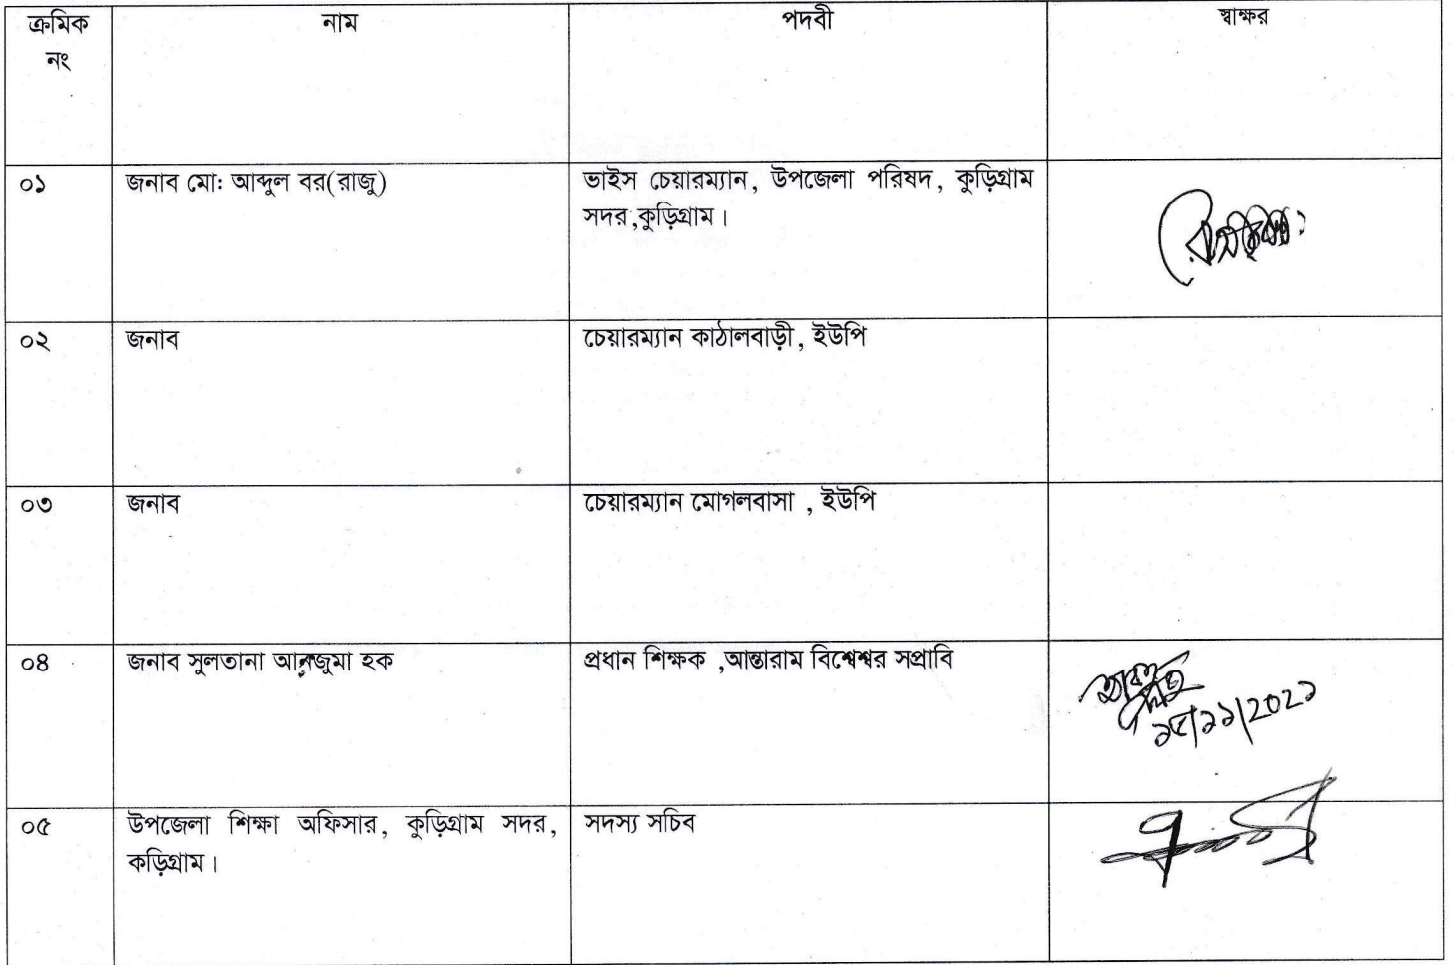 ক্রমিক নং নাম পদবী স্বাক্ষর
০১ জনাব মো: আব্দুল বর(রাজু) ভাইস চেয়ারম্যান, উপজেলা পরিষদ, কুড়িগ্রাম
সদর,কুড়িগ্রাম।
০২ জনাব চেয়ারম্যান কাঠালবাড়ী, ইউপি
০৩ জনাব চেয়ারম্যান মোগলবাসা , ইউপি
০৪ জনাব সুলতানা আনজুমা হক প্রধান শিক্ষক ,আত্তারাম বিশ্বেশ্বর সপ্রাবি
১৫/১১/2021
০৫ উপজেলা শিক্ষা অফিসার, কুড়িগ্রাম সদর, সদস্য সচিব
কড়িগ্রাম।